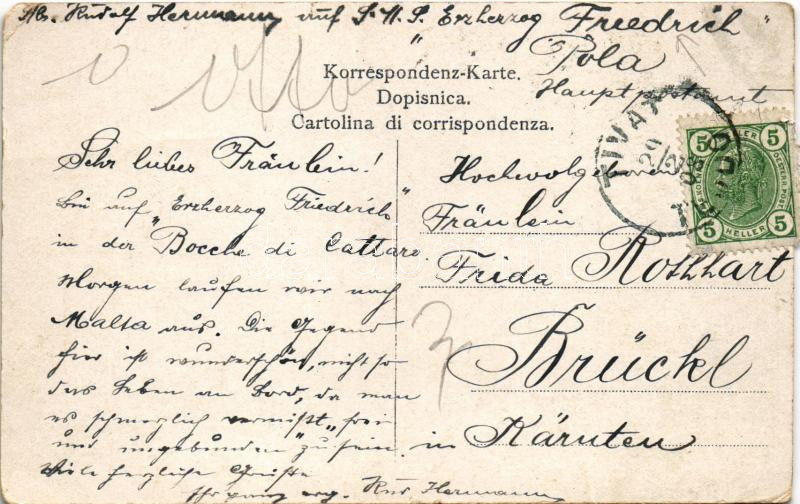 Abs. Rudolf Hermann auf S.M.S. Erzherzog Friedrich"
Pola
Hauptpostamt
Otto
Korrespondenz-Karte.
Dopisnica.
Cartolina di corrispondenza.
Sehr liebes Fräulein!
bin auf „Erzherzog Friedrich"
in der „Bocche di Cattaro.
Morgen laufen wir nach
Malta aus. Die Gegend
hier ist wunderschön, nicht so
das Leben an Bord, da man
es schmerzlich vermißt „frei
und ungebunden" zu sein.
Viele herzliche Grüße
Ihr ganz erg. Rud Hermann
Hochwolgeboren
Fräulein
Frida Rothhart
Brückl
in Kärnten
TIVAT
TEODO
5 HELLER 5
5 HELLER 5